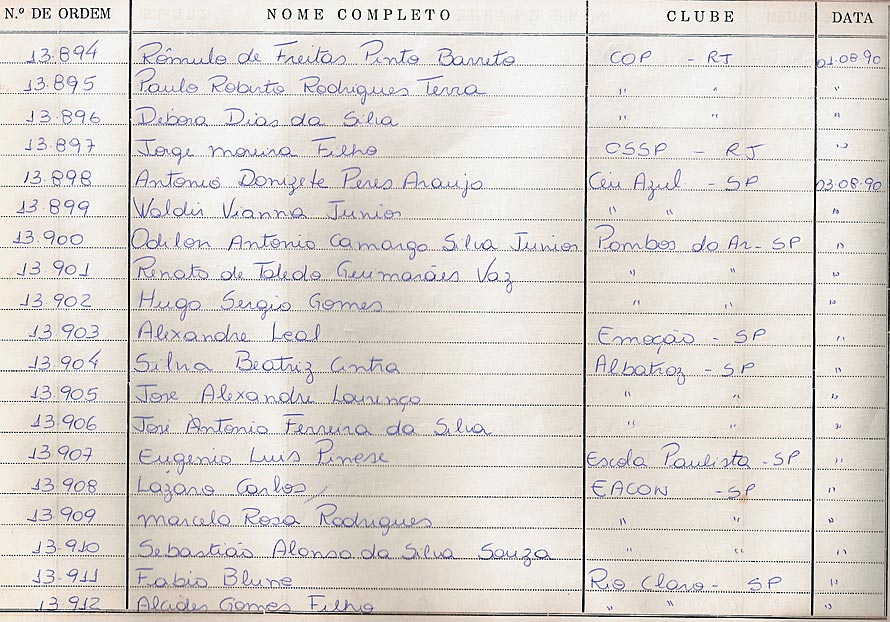 N.º DE ORDEM NOME COMPLETO CLUBE DATA
13.894 Rômulo de Freitas Pinto Barreto COP - RJ 01.08.90
13.895 Paulo Roberto Rodrigues Terra " " "
13.896 Debora Dias da Silva " " "
13.897 Jorge Moreira Filho CSSP - RJ "
13.898 Antonio Donizete Peres Araujo Céu Azul - SP 03.08.90
13.899 Valdir Vianna Junior " " "
13.900 Odilon Antonio Camargo Silva Junior Pombos do Ar - SP "
13.901 Renato de Toledo Guimarães Vaz " " "
13.902 Hugo Sergio Gomes " " "
13.903 Alexandre Leal Emoção - SP "
13.904 Silvia Beatriz Cintra Albatroz - SP "
13.905 José Alexandre Lourenço " " "
13.906 José Antonio Ferreira da Silva " " "
13.907 Eugenio Luis Pinese Escola Paulista - SP "
13.908 Lazaro Carlos EACON - SP "
13.909 Marcelo Rosa Rodrigues " " "
13.910 Sebastião Alonso da Silva Souza " " "
13.911 Fabio Blune Rio Claro - SP "
13.912 Alcides Gomes Filho " " "